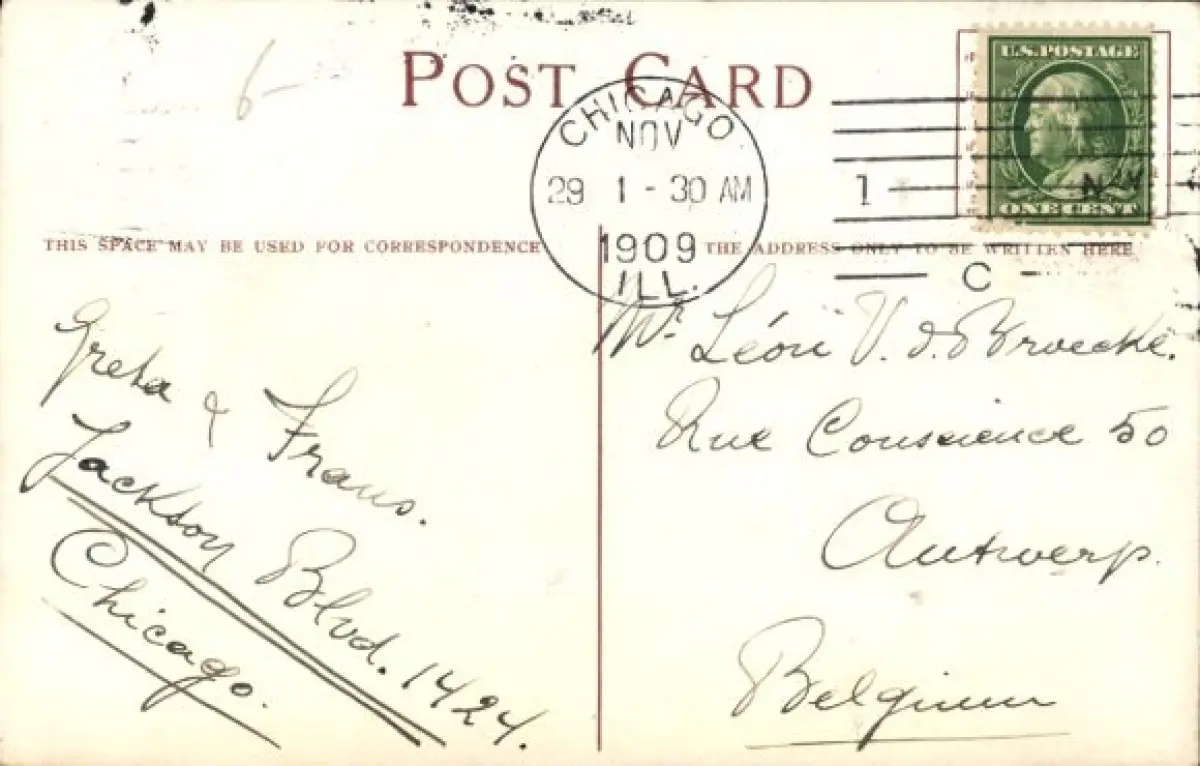 6-
POST CARD
U.S. POSTAGE
ONE CENT
CHICAGO
NOV
29 1-30 AM
1909
ILL.
1
C
THIS SPACE MAY BE USED FOR CORRESPONDENCE
THE ADDRESS ONLY TO BE WRITTEN HERE
Greta & Frans.
Jackson Blvd. 1424.
Chicago.
Mr Léon V. d. Broecke.
Rue Conscience 50
Antwerp.
Belgium